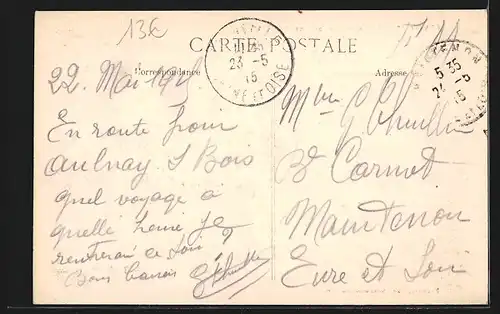 13€
CARTE POSTALE
Correspondance
Adresse
ET OISE
23 -5
15
5 35
24 -5
15
22 Mai 1915
En route pour
Aulnay S Bois
quel voyage à
quelle heure je
rentrerai ce soir ?
Bons baisers
Mme G
Bd Carnot
Maintenon
Eure et Loir